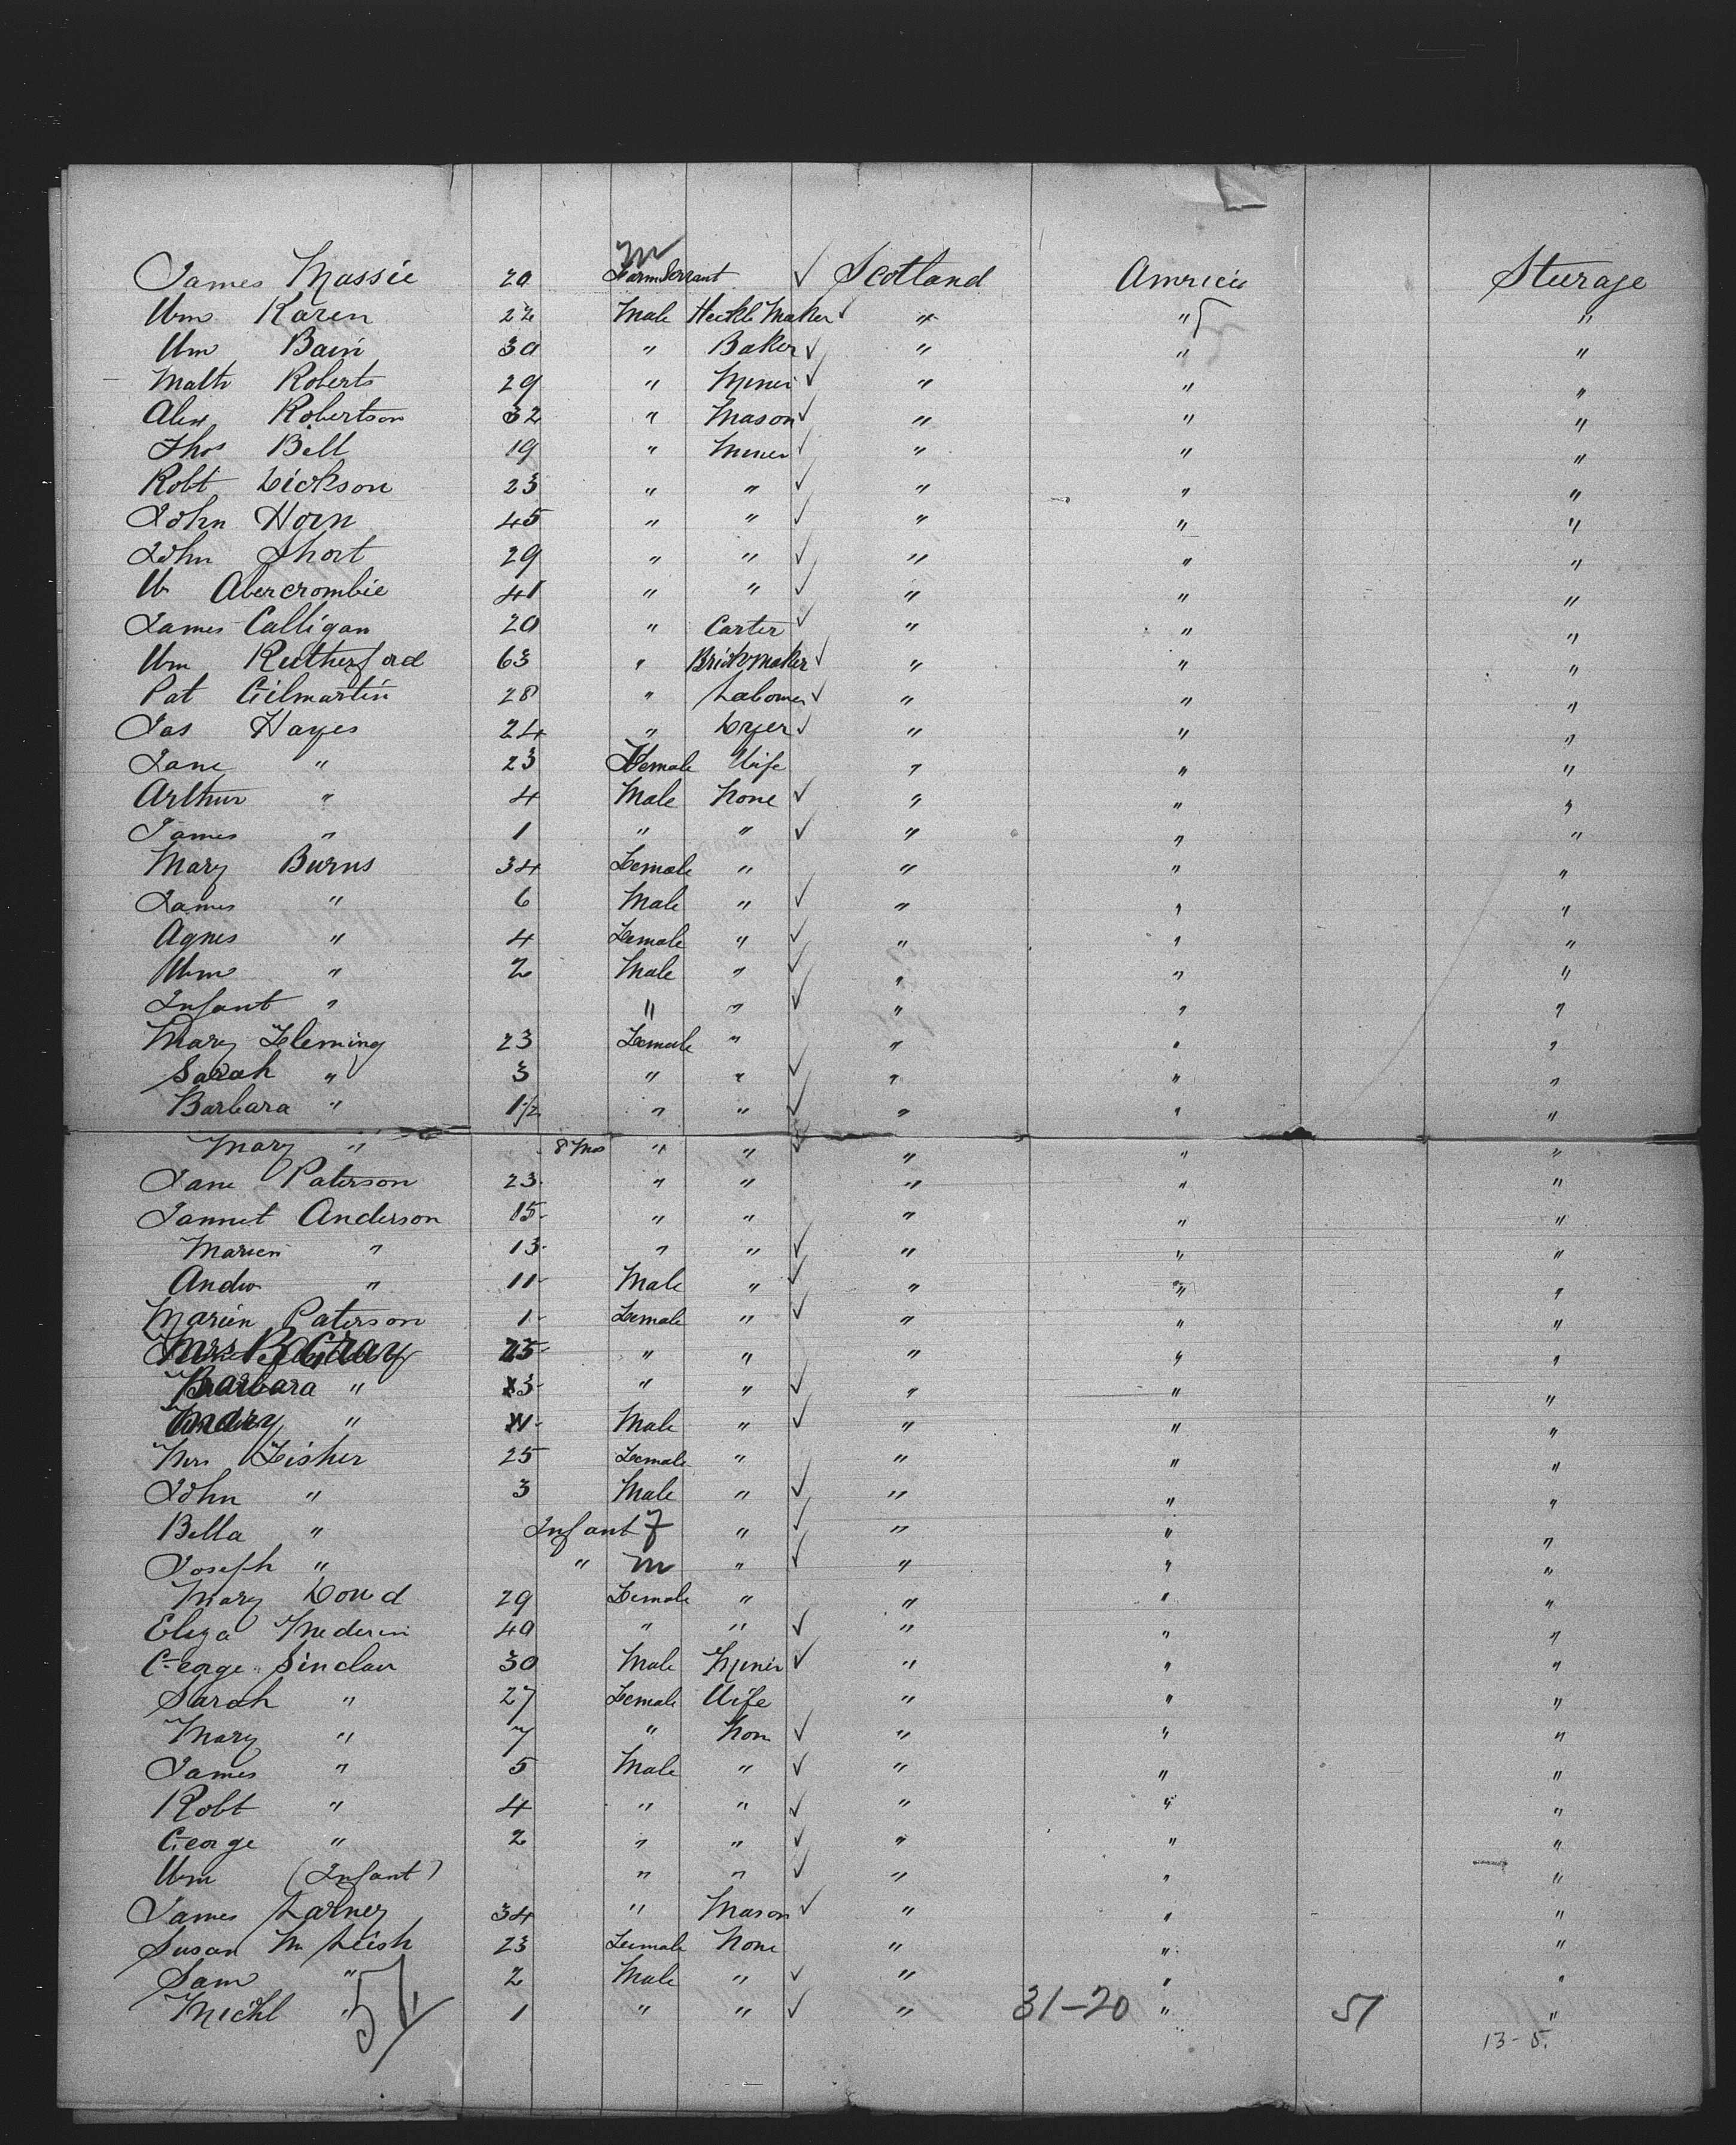 James Massie 20 m Farm Servant ✓ Scotland America Steerage
Wm Karen 22 Male Heckle Maker ✓ " " "
Wm Bain 30 " Baker ✓ " " "
Math Roberts 29 " Miner ✓ " " "
Alex Robertson 32 " Mason ✓ " " "
Thos Bell 19 " Miner ✓ " " "
Robt Dickson 23 " " ✓ " " "
John Horn 45 " " ✓ " " "
John Short 29 " " ✓ " " "
W Abercrombie 41 " " ✓ " " "
James Calligan 20 " Carter ✓ " " "
Wm Rutherford 63 " Brickmaker ✓ " " "
Pat Gilmartin 28 " Labourer ✓ " " "
Jas Hayes 24 " Dyer ✓ " " "
Jane " 23 Female Wife " " "
Arthur " 4 Male None ✓ " " "
James " 1 " " ✓ " " "
Mary Burns 34 Female " " " "
James " 6 Male " ✓ " " "
Agnes " 4 Female " ✓ " " "
Wm " 2 Male " ✓ " " "
Infant " " " ✓ " " "
Mary Fleming 23 Female " " " "
Sarah " 3 " " ✓ " " "
Barbara " 1½ " " ✓ " " "
Mary " 8 Mos " " ✓ " " "
Jane Paterson 23 " " " " "
Jannet Anderson 15 " " " " "
Marien " 13 " " ✓ " " "
Andw " 11 Male " ✓ " " "
Marien Paterson 1 Female " ✓ " " "
Mrs B Gray 25 " " " " "
Barbara " 3 " " ✓ " " "
" Male " ✓ " " "
Mrs Fisher 25 Female " " " "
John " 3 Male " ✓ " " "
Bella " Infant f " ✓ " " "
Joseph " " m " ✓ " " "
Mary Doud 29 Female " " " "
Eliza 40 " " ✓ " " "
George Sinclair 30 Male Miner ✓ " " "
Sarah " 27 Female Wife " " "
Mary " 7 " Non ✓ " " "
James " 5 Male " ✓ " " "
Robt " 4 " " ✓ " " "
George " 2 " " ✓ " " "
Wm (Infant) " " ✓ " " "
James Larney 34 " Mason ✓ " " "
Susan Mc Leish 23 Female None " " "
Sam " 2 Male " ✓ " " "
Michl " 51 1 " " ✓ " 31-20 " 51 "
13-5.